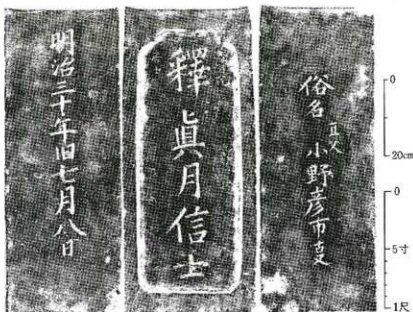 俗名 小野彦市
釋眞月信士
明治三十年旧七月八日
0
20cm
0
5寸
1尺